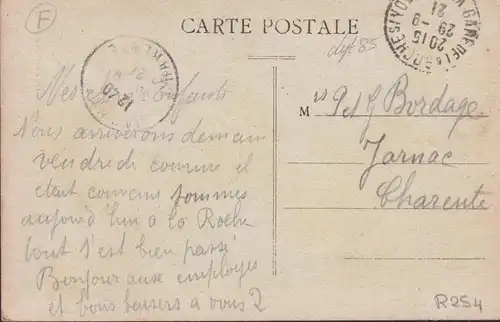 F
CARTE POSTALE
dépt 85
GARE DE LA ROCHE S/YON
2015
29 -9
21
12 40
Mes chers enfants
Nous arriverons demain
vendredi comme il
était convenu sommes
aujourd'hui à la Roche
tout s'est bien passé
Bonjour aux employés
et bons baisers à vous 2
M rs P et G Bordage
Jarnac
Charente
R254